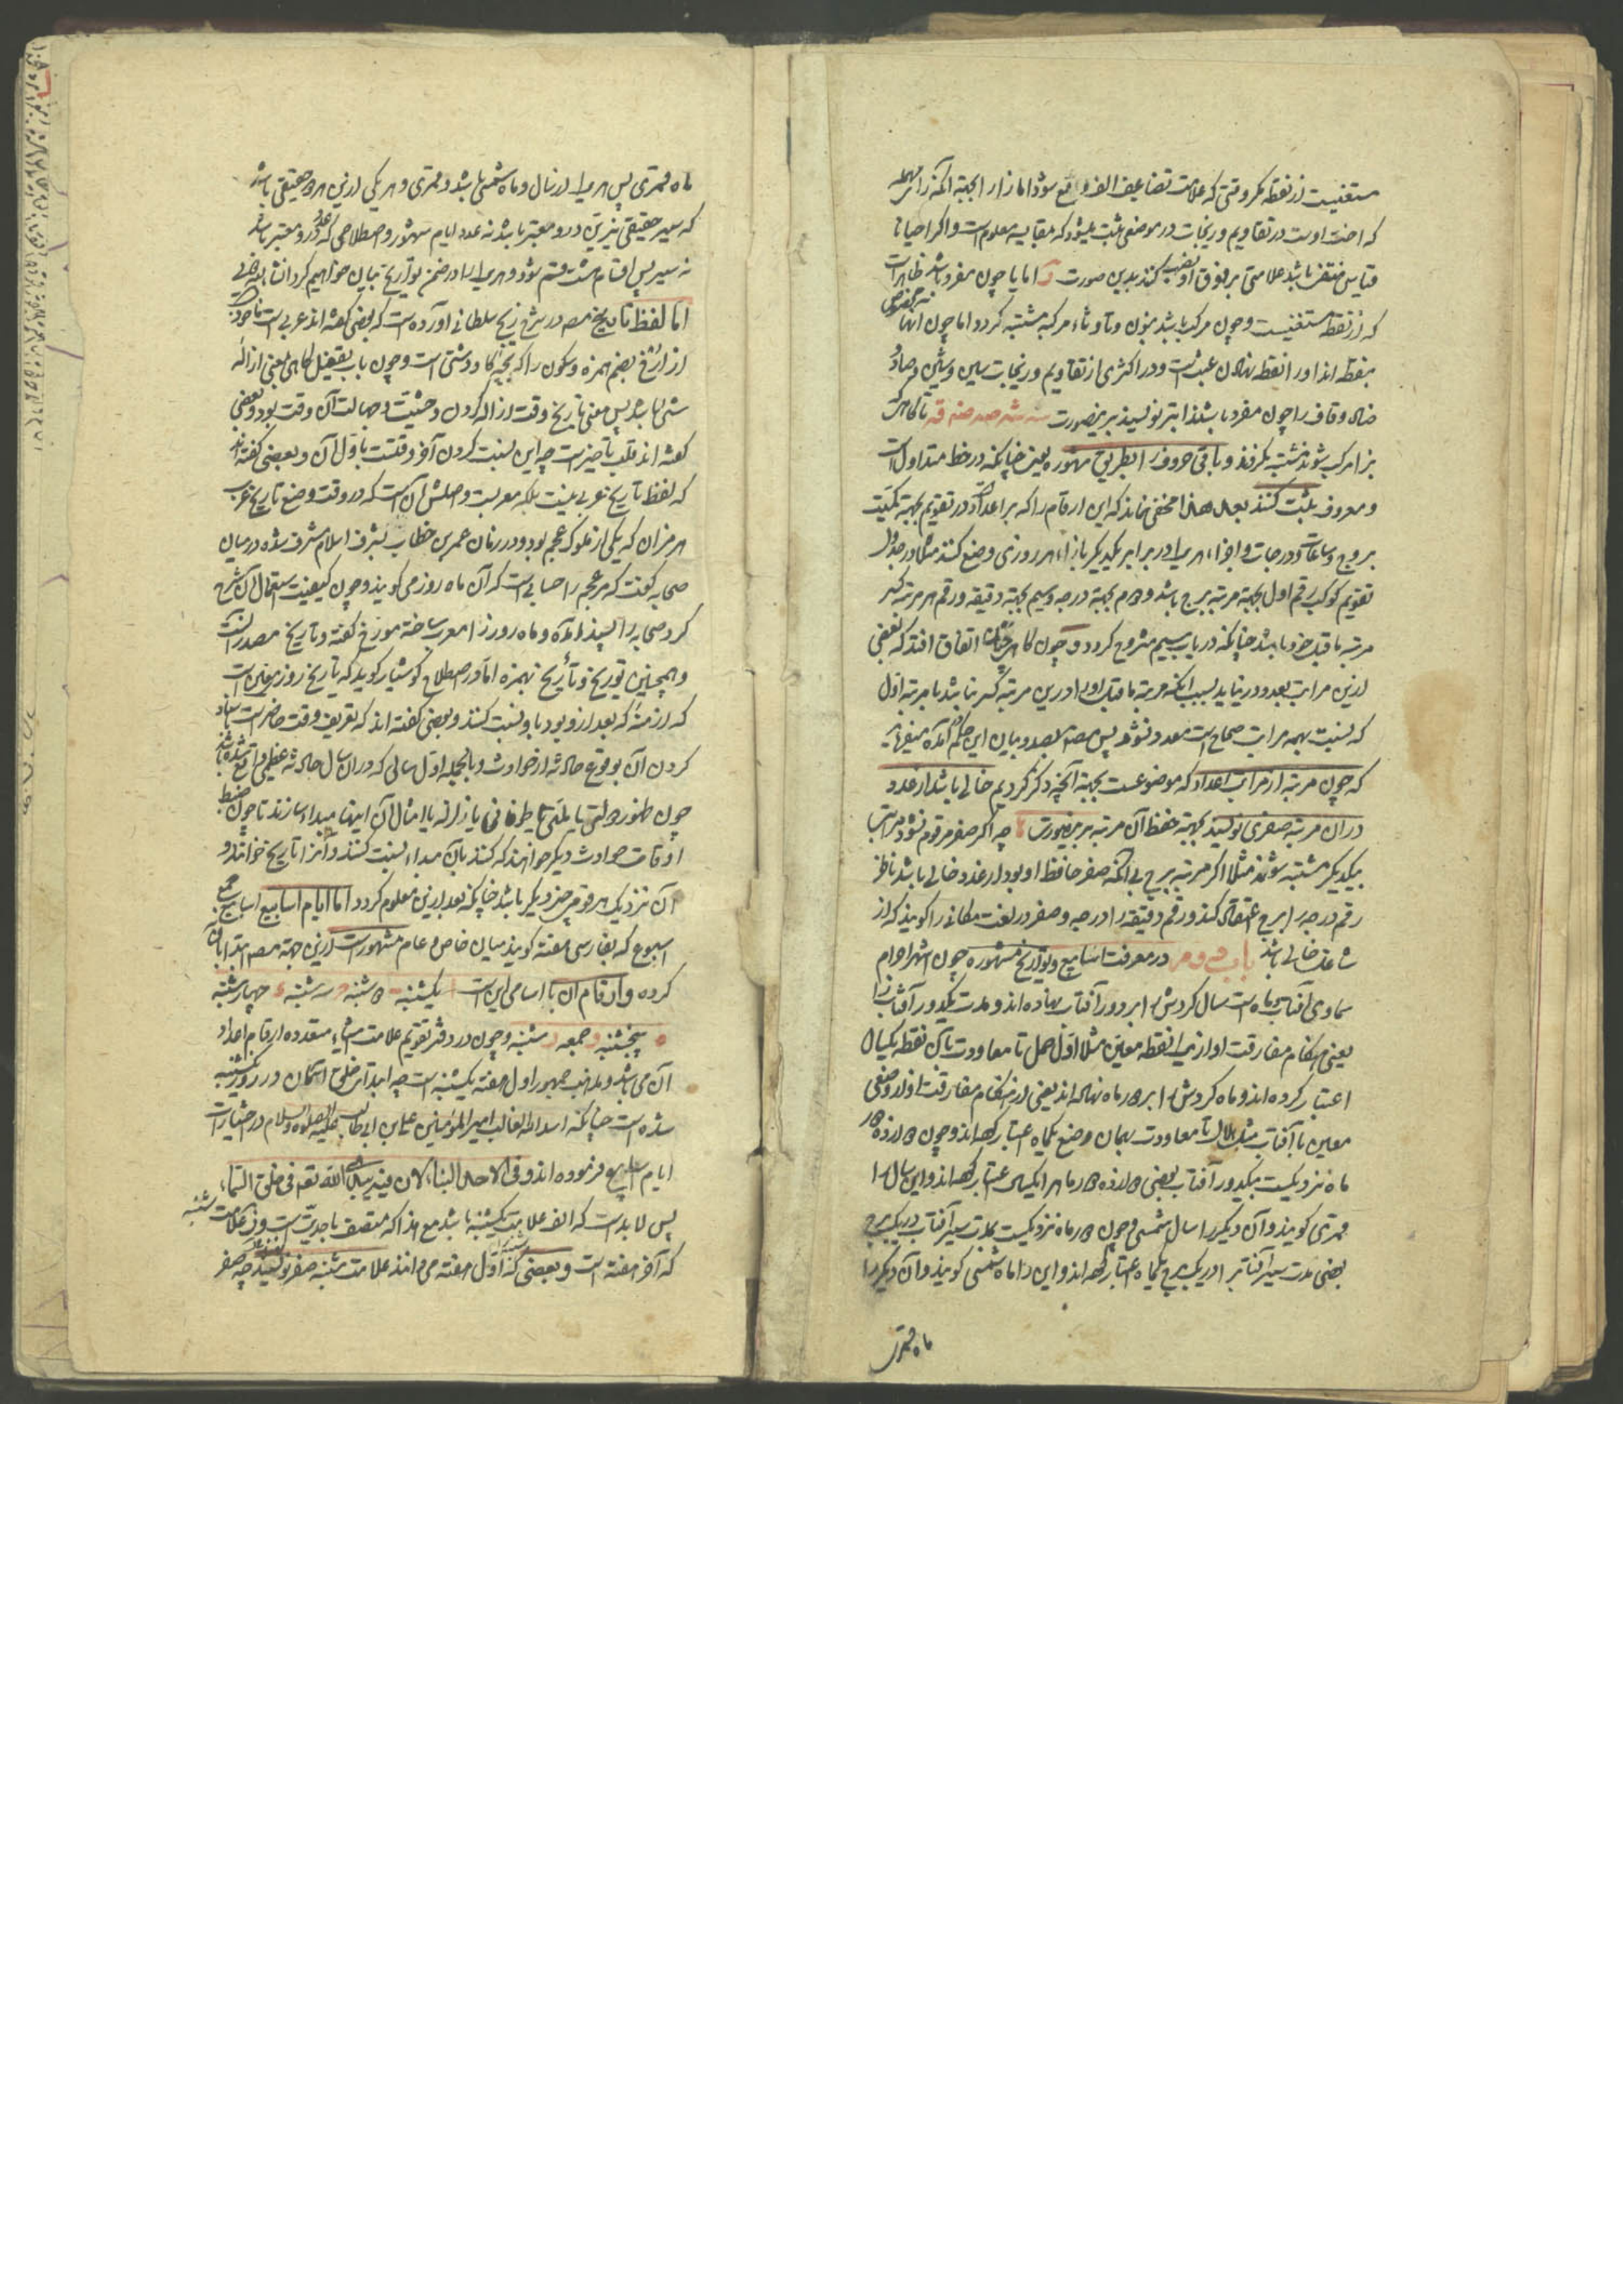 مستغنیست از نقطه مکر وقتی که علامت تضاعیف الف واقع شود اما زا را بجهة آنکه زاء مهمله
که اخت اوست در تقاویم و زیجات در موضعی ثبت میشود که مقایسه معلوم است و اکر احیانا
قیاس منتفی باشد علامتی بر فوق او نصب کنند بدین صورت اما یا چون مفرد باشد ظاهرست
که از نقطه مستغنیست و چون مرکب باشد بنون و تا و ثاء مرکبه مشتبه کردد اما چون آنها
بنقطه اند او را نقطه نهادن عبث است و در اکثری از تقاویم و زیجات سین و شین و صاد و
ضاد و قاف را چون مفرد باشند ابتر نویسند برینصورت سـ شـ صـ ضـ قـ تا کاهی که
مرکب شوند مشتبه نکردند و باقی حروف را بطریق مشهوره بعین چنانکه در خط متداول است
و معروف ثبت کنند بعد هذا مخفی نماند که این ارقام را که بر اعداد در تقویم بجهة کمیت
بروج و ساعات و درجات و اجزاء هر یک را در برابر یکدیگر بازاء هر روزی وضع کنند مثلا در جدول
تقویم کوکب رقم اول بجهة مرتبه برج باشد و دوم بجهة درجه و سیم بجهة دقیقه و رقم هر مرتبه کسر
مرتبه ما قبل خود باشد چنانکه در باب سیم مشروح کردد و چون کاهی چنان اتفاق افتد که بعضی
ازین مراتب بعدد در نیاید بسبب آنکه مرتبه ما قبل او را درین مرتبه کسر نباشد یا مرتبه اول
که نسبت بهمه مراتب صحاح است معدود نشود پس مصنف بصدد بیان این حکم آمده میفرماید
که چون مرتبه از مراتب اعداد که موضوعست بجهة آنچه ذکر کردیم خالی باشد از عدد
دران مرتبه صفری نویسند بجهة حفظ آن مرتبه برینصورت چه اکر صفر مرقوم نشود مراتب
بیکدیکر مشتبه شوند مثلا اکر مرتبه برج بی آنکه صفر حافظ او بود از عدد خالی باشد ناظر
رقم درجه را برج اعتقاد کند و رقم دقیقه را درجه و صفر در لغت مکانی را کویند که از
شاغل خالی باشد باب دوم در معرفت اسابیع و تواریخ مشهوره چون اشهر اجرام
سماوی آفتاب و ماه است سال کردش را بر دور آفتاب نهاده اند و مدت یکدور آفتاب را
یعنی هنکام مفارقت او از نقطه معین مثلا اول حمل تا معاودت بآن نقطه یکسال
اعتبار کرده اند و ماه کردش را بر دور ماه نهاده اند یعنی از هنکام مفارقت او از وضعی
معین با آفتاب مثل هلال تا معاودت بهمان وضع یکماه اعتبار کرده اند و چون دوازده دور
ماه نزدیکست بیکدور آفتاب بعضی دوازده دور ماه را یکسال اعتبار کرده اند و این سال را
قمری کویند و آن دیکر را سال شمسی و چون دور ماه نزدیکست بمدت سیر آفتاب در یک برج
بعضی مدت سیر آفتاب را در یک برج یکماه اعتبار کرده اند و این را ماه شمسی کویند و آن دیکر را
ماه قمری
ماه قمری پس هر یک از سال و ماه شمسی باشد و قمری و هر یکی ازین هر دو حقیقی باشد
که سیر حقیقی نیرین درو معتبر باشد نه عدد ایام شهور و اصطلاحی که عدد درو معتبر باشد
نه سیر پس اقسام هشت قسم شود و هر یک را در ضمن تواریخ بیان خواهیم کرد انشاء الله تعالی
اما لفظ تاریخ مصنف در شرح زیج سلطانی آورده است که بعضی کفته اند عربی است ماخوذ
از ارخ بضم همزه و سکون را که بچه کاو دشتی است و چون باب تفعیل کاهی بمعنی ازاله
شی باشد پس معنی تاریخ وقت ازاله کردن وحشیت و جهالت آن وقت بود و بعضی
کفته اند قلب تاخیر است چه این نسبت کردن آخر وقتست باول آن و بعضی کفته اند
که لفظ تاریخ عربی نیست بلکه معربست و اصلش آن است که در وقت وضع تاریخ عرب
هرمزان که یکی از ملوک عجم بود و در زمان عمر بن خطاب بشرف اسلام مشرف شده در میان
صحابه کفت که مر عجم را حسابی است که آن ماه روز می کویند و چون کیفیت استعمال آن شرح
کرد صحابه را پسند آمده و ماه روز را معرب ساخته مورخ کفته و تاریخ مصدر آنست
و همچنین توریخ و تأریخ بهمزه اما در اصطلاح کوشیار کوید که تاریخ روز معین است
که ازمنه که بعد ازو بود باو نسبت کنند و بعضی کفته اند که تعریف وقت حاضر است باسناد
کردن آن بوقوع حادثه از حوادث و بالجمله اول سالی که دران سال حادثه عظیم واقع شده باشد
چون ظهور دولتی یا ملتی یا طوفانی یا زلزله یا امثال آن اینها مبداء سازند تا چون ضبط
اوقات حوادث دیکر خواهند که کنند بآن مبداء نسبت کنند و آنرا تاریخ خوانند و
آن نزدیک هر قومی چیز دیکر باشد چنانکه بعد ازین معلوم کردد اما ایام اسابیع اسابیع جمع
اسبوع که بفارسی هفته کویند میان خاص و عام مشهور است ازین جهة مصنف ابتدا بآن
کرده و ارقام آن با اسامی این است یکشنبه دوشنبه سه شنبه چهارشنبه
پنجشنبه جمعه شنبه و چون در دفتر تقویم علامت اشیاء متعدده ارقام اعداد
آن می باشد و مذهب جمهور اول هفته یکشنبه است چه ابتداء خلق آسمان در روز یکشنبه
شده است چنانکه اسد الله الغالب امیر المؤمنین علی بن ابی طالب علیه الصلوة و السلام در اختیارات
ایام اسابیع فرموده اند و فی الاحد البناء لان فیه تبدی الله تع فی خلق السماء
پس لا بد است که الف علامت یکشنبه باشد مع هذا که متصف باحدیت است و ز علامت شنبه
که آخر هفته است و بعضی که شنبه را اول هفته می دانند علامت شنبه صفر نویسند چه صفر